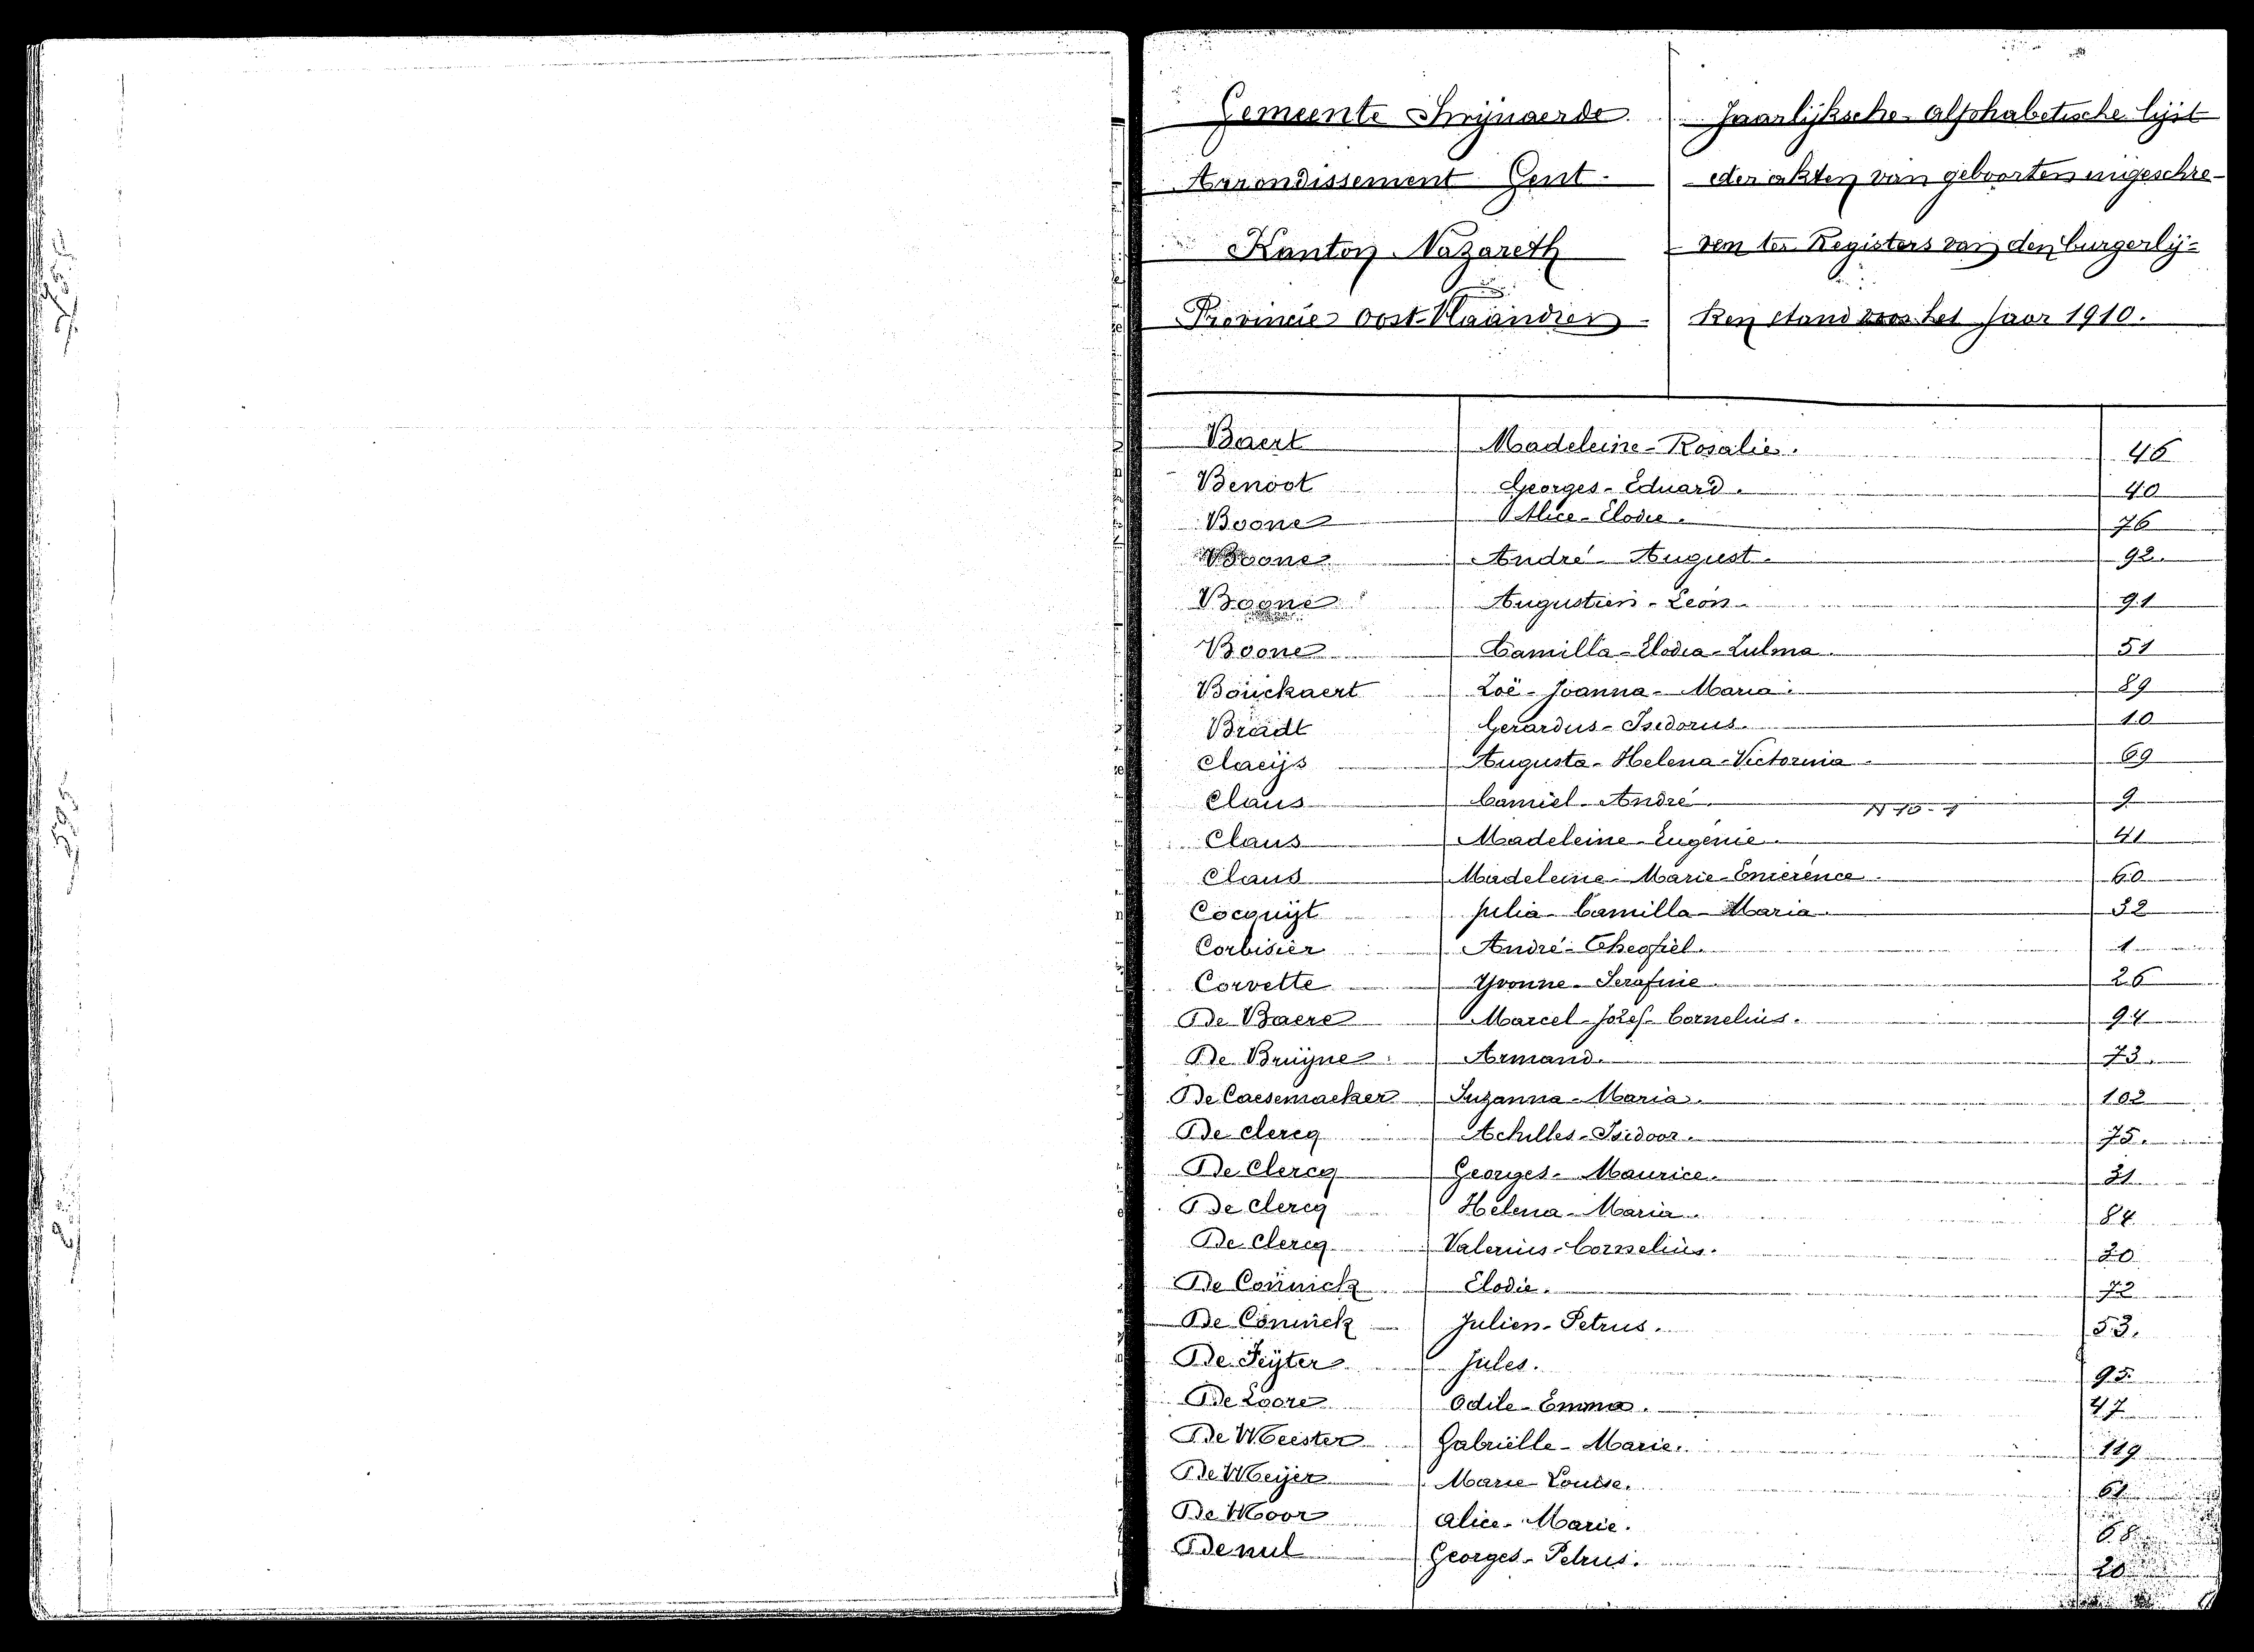 Gemeente Swijnaerde. Jaarlijksche alphabetische lijst
Arrondissement Gent. der akten van geboorten ingeschre-
Kanton Nazareth ven ter Registers van den burgerlij-
Provincie Oost-Vlaandren ken stand voor het jaar 1910.
Baert Madeleine-Rosalie. 46
Benoot Georges-Eduard. 40
Boone Alice-Elodie. 76
Boone André-August. 92
Boone Augustien-Leon. 91
Boone Camilla-Elodia-Zulma 51
Bouckaert Zoë-Joanna-Maria. 89
Bradt Gerardus-Isidorus. 10
Claeijs Augusta-Helena-Victorina 69
Claus Camiel-André. 9
Claus Madeleine-Eugenie. 41
Claus Madeleine-Marie-Emerence 60
Cocquijt Julia-Camilla-Maria. 32
Corbisier André-Theofiel. 1
Corvette Yvonne-Serafine 26
De Baere Marcel-Jozef-Cornelius. 94
De Bruijne Armand. 73
De Caesemaeker Suzanna-Maria. 102
De Clercq Achilles-Isidoor. 75.
De Clercq Georges-Maurice. 31
De Clercq Helena-Maria. 84
De Clercq Valerius-Cornelius. 20
De Coninck Elodie. 72
De Coninck Julien-Petrus. 53.
De Feijter Jules. 95
De Loore Odile-Emma. 47
De Meester Gabrielle-Marie. 119
De Meijer Marie-Louise. 61
De Moor Alice-Marie. 68
De nul Georges-Petrus.